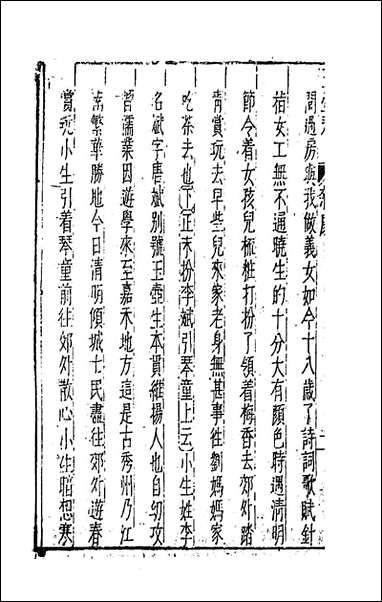 問過房與我做義女如今十八歲了詩詞歌賦針
指女工無不通曉生的十分大有顏色時遇清明
節令着女孩兒梳粧打扮了領着梅香去郊外踏
青賞玩去早些兒來家老身無甚事徃劉媽媽家
吃茶去也〔下〕〔正末扮李斌引琴童上云〕小生姓李
名斌字唐斌別號玉壺生本貫維揚人也自幼攻
習儒業因遊學來至嘉禾地方這是古秀州乃江
南繁華勝地今日清明傾城士民盡徃郊外遊春
賞玩小生引着琴童前徃郊外散心小生暗想寒